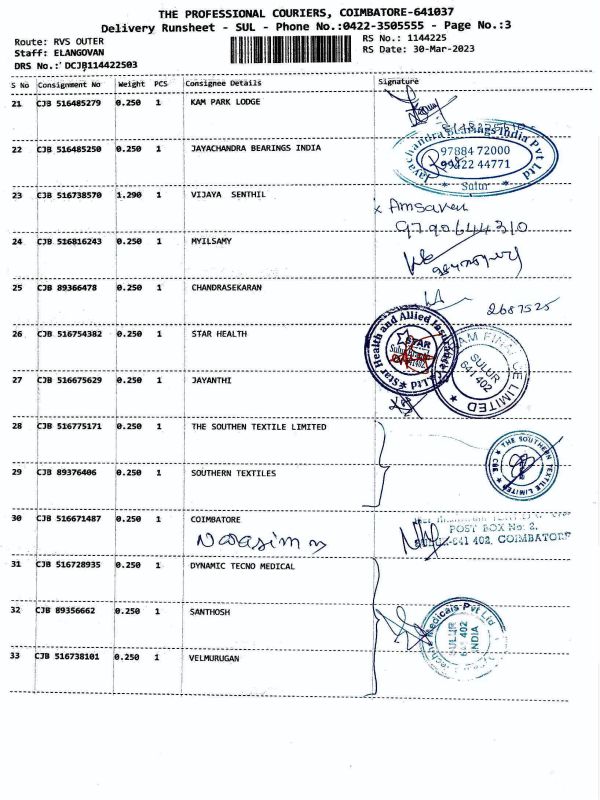 THE PROFESSIONAL COURIERS, COIMBATORE-641037
Delivery Runsheet - SUL - Phone No.:0422-3505555 - Page No.:3
Route: RVS OUTER
RS No.: 1144225
Staff: ELANGOVAN
RS Date: 30-Mar-2023
DRS No.: DCJB114422503
S No Consignment No Weight PCS Consignee Details Signature
21 CJB 516485279 0.250 1 KAM PARK LODGE
22 CJB 516485250 0.250 1 JAYACHANDRA BEARINGS INDIA
Jayachandra Bearings India Pvt Ltd
97884 72000
44771
* Sulur *
23 CJB 516738570 1.290 1 VIJAYA SENTHIL
x Amsaveni
9790644310
24 CJB 516816243 0.250 1 MYILSAMY
25 CJB 89366478 0.250 1 CHANDRASEKARAN
2687525
26 CJB 516754382 0.250 1 STAR HEALTH
Star Health and Allied Insurance Ltd
STAR
SULUR
641 402
LIMITED
27 CJB 516675629 0.250 1 JAYANTHI
28 CJB 516775171 0.250 1 THE SOUTHEN TEXTILE LIMITED
THE SOUTHERN TEXTILE LIMITED * CBE *
29 CJB 89376406 0.250 1 SOUTHERN TEXTILES
30 CJB 516671487 0.250 1 COIMBATORE
Narasimm
POST BOX No: 2,
SULUR-641 402, COIMBATORE
31 CJB 516728935 0.250 1 DYNAMIC TECNO MEDICAL
32 CJB 89356662 0.250 1 SANTHOSH
Medicals Pvt Ltd
SULUR
641 402
INDIA
33 CJB 516738101 0.250 1 VELMURUGAN